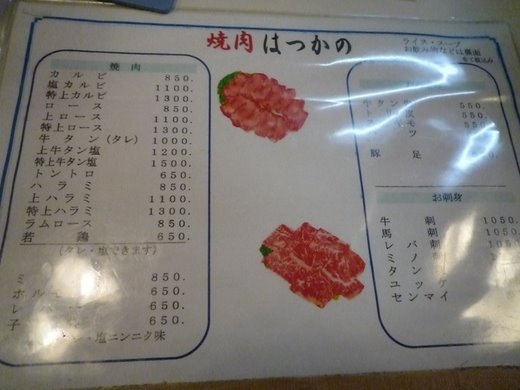 焼肉 はつかの
ライス・スープ
お飲み物などは裏面
焼肉
カルビ 850.
塩カルビ 1100.
特上カルビ 1300.
ロース 850.
上ロース 1100.
特上ロース 1300.
牛タン(タレ) 1000.
上牛タン塩 1200.
特上牛タン塩 1500.
トントロ 650.
ハラミ 850.
上ハラミ 1100.
特上ハラミ 1300.
ラムロース 850.
若鶏 650.
(タレ・塩できます)
ミ 850.
ホル 650.
レ 650.
子 650.
塩ニンニク味
牛タン 550.
550.
モツ 550.
豚足
お刺身
牛刺 1050.
馬刺 1050.
レバ刺
ミノ
タン
ユッケ
センマイ